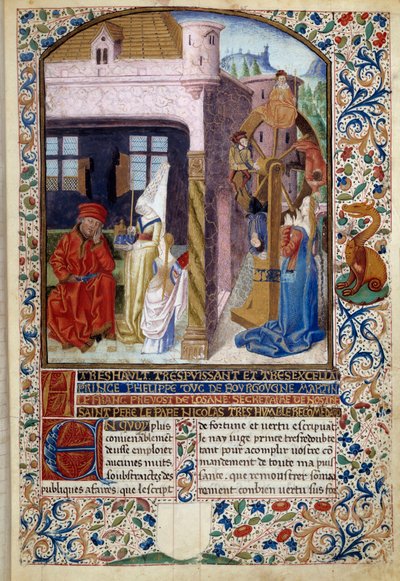 TRESHAULT TRESPUISSANT ET TRESEXCELLE
PRINCE PHELIPPE DUC DE BOURGOUGNE MARTIN
LEFRANC PREVOST DE LOSANE SECRETAIRE DE NOSTRE
SAINT PERE LE PAPE NICOLAS TRESHUMBLE RECOMEDA
EN quoy plus
convenablemet
eusse employer
aucunes nuits
soubstraictes des
publiques afaires, que lescript
de fortune et vertu escripuat
Je nay iuge prince tresredoubte
tant pour acomplir vostre co
mandement de toute ma puis
sance, que remonstrer somai
rement conbien vertu sus for